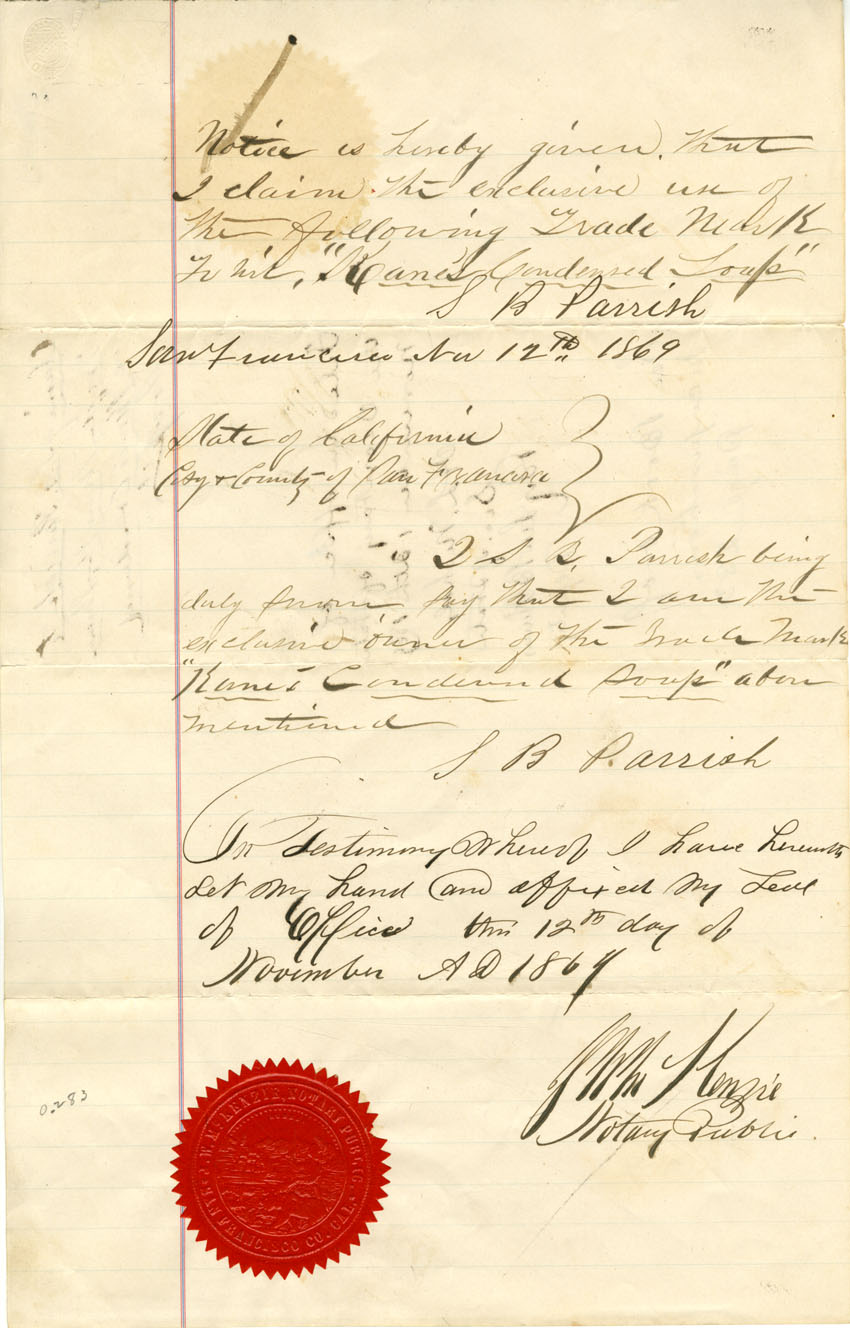 Notice is hereby given, that
I claim the exclusive use of
the following Trade Mark
to wit, "Kane's Condensed Soap"
S B Parrish
San Francisco Nov 12th 1869
State of California
City & County of San Francisco
I S B. Parrish being
duly sworn say that I am the
exclusive owner of the Trade Mark
"Kane's Condensed Soap" above
mentioned
S B Parrish
In Testimony Whereof I have hereunto
Set my hand and affixed my Seal
of Office this 12th day of
November A D 1869
J W McKenzie
Notary Public.
0283
J. W. McKENZIE NOTARY PUBLIC
SAN FRANCISCO CO. CAL.